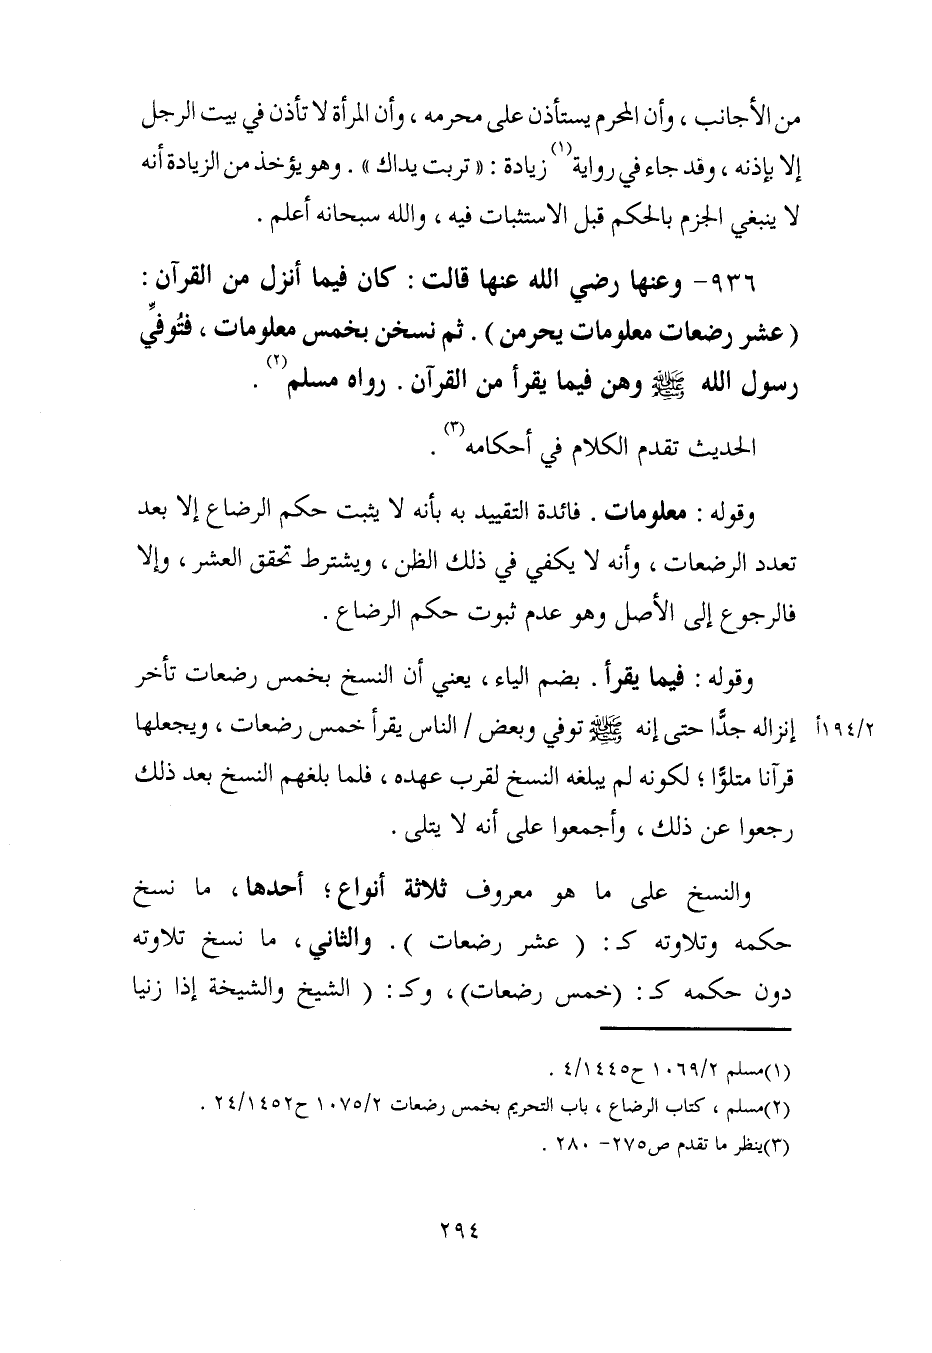 من الأجانب ، وأن المحرم يستأذن على محرمه ، وأن المرأة لا تأذن في بيت الرجل
إلا بإذنه ، وقد جاء في رواية(١) زيادة : « تربت يداك » . وهو يؤخذ من الزيادة أنه
لا ينبغي الجزم بالحكم قبل الاستثبات فيه ، والله سبحانه أعلم .
٩٣٦- وعنها رضي الله عنها قالت : كان فيما أنزل من القرآن :
( عشر رضعات معلومات يحرمن ) . ثم نسخن بخمس معلومات ، فتُوفِّيَ
رسول الله ﷺ وهن فيما يقرأ من القرآن . رواه مسلم(٢) .
الحديث تقدم الكلام في أحكامه(٣) .
وقوله : معلومات . فائدة التقييد به بأنه لا يثبت حكم الرضاع إلا بعد
تعدد الرضعات ، وأنه لا يكفي في ذلك الظن ، ويشترط تحقق العشر ، وإلا
فالرجوع إلى الأصل وهو عدم ثبوت حكم الرضاع .
وقوله : فيما يقرأ . بضم الياء ، يعني أن النسخ بخمس رضعات تأخر
إنزاله جدًّا حتى إنه ﷺ توفي وبعض / الناس يقرأ خمس رضعات ، ويجعلها ١٩٤/٢أ
قرآنا متلوًّا ؛ لكونه لم يبلغه النسخ لقرب عهده ، فلما بلغهم النسخ بعد ذلك
رجعوا عن ذلك ، وأجمعوا على أنه لا يتلى .
والنسخ على ما هو معروف ثلاثة أنواع ؛ أحدها ، ما نسخ
حكمه وتلاوته كـ : ( عشر رضعات ) . والثاني ، ما نسخ تلاوته
دون حكمه كـ : (خمس رضعات) ، وكـ : ( الشيخ والشيخة إذا زنيا
(١)مسلم ١٠٦٩/٢ ح٤/١٤٤٥ .
(٢)مسلم ، كتاب الرضاع ، باب التحريم بخمس رضعات ١٠٧٥/٢ ح٢٤/١٤٥٢ .
(٣)ينظر ما تقدم ص٢٧٥- ٢٨٠ .
٢٩٤